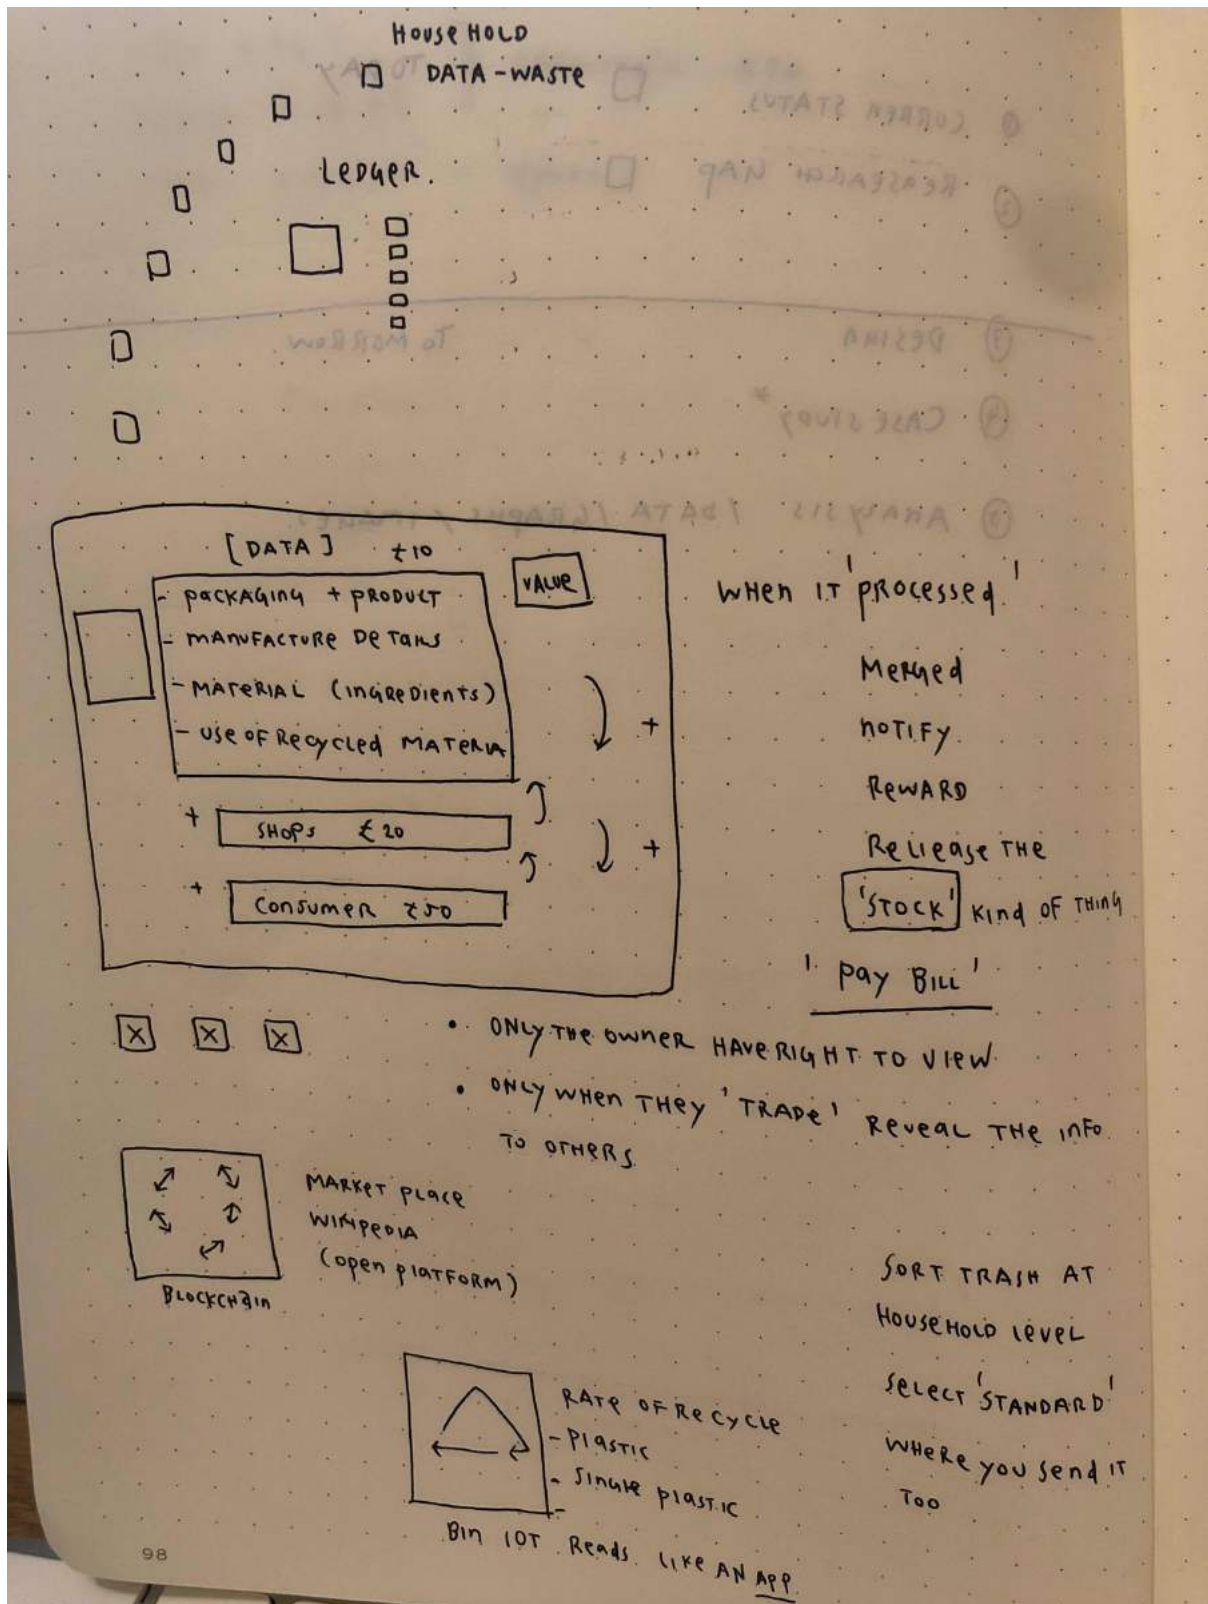 HOUSEHOLD
DATA-WASTE
LEDGER.
[DATA] £10
VALUE
- PACKAGING + PRODUCT
- MANUFACTURE DETAILS
- MATERIAL (INGREDIENTS)
- USE OF RECYCLED MATERIA
+
+ SHOPS £20
+
+ CONSUMER £50
WHEN IT 'PROCESSED'
MERGED
NOTIFY
REWARD
RELIEASE THE
'STOCK' KIND OF THING
'PAY BILL'
X X X
• ONLY THE OWNER HAVE RIGHT TO VIEW
• ONLY WHEN THEY 'TRADE' REVEAL THE INFO
TO OTHERS
MARKET PLACE
WIKIPEDIA
(OPEN PLATFORM)
BLOCKCHAIN
SORT TRASH AT
HOUSEHOLD LEVEL
SELECT 'STANDARD'
WHERE YOU SEND IT
TOO
RATE OF RECYCLE
- PLASTIC
- SINGLE PLASTIC
-
BIN IOT READS LIKE AN APP
98